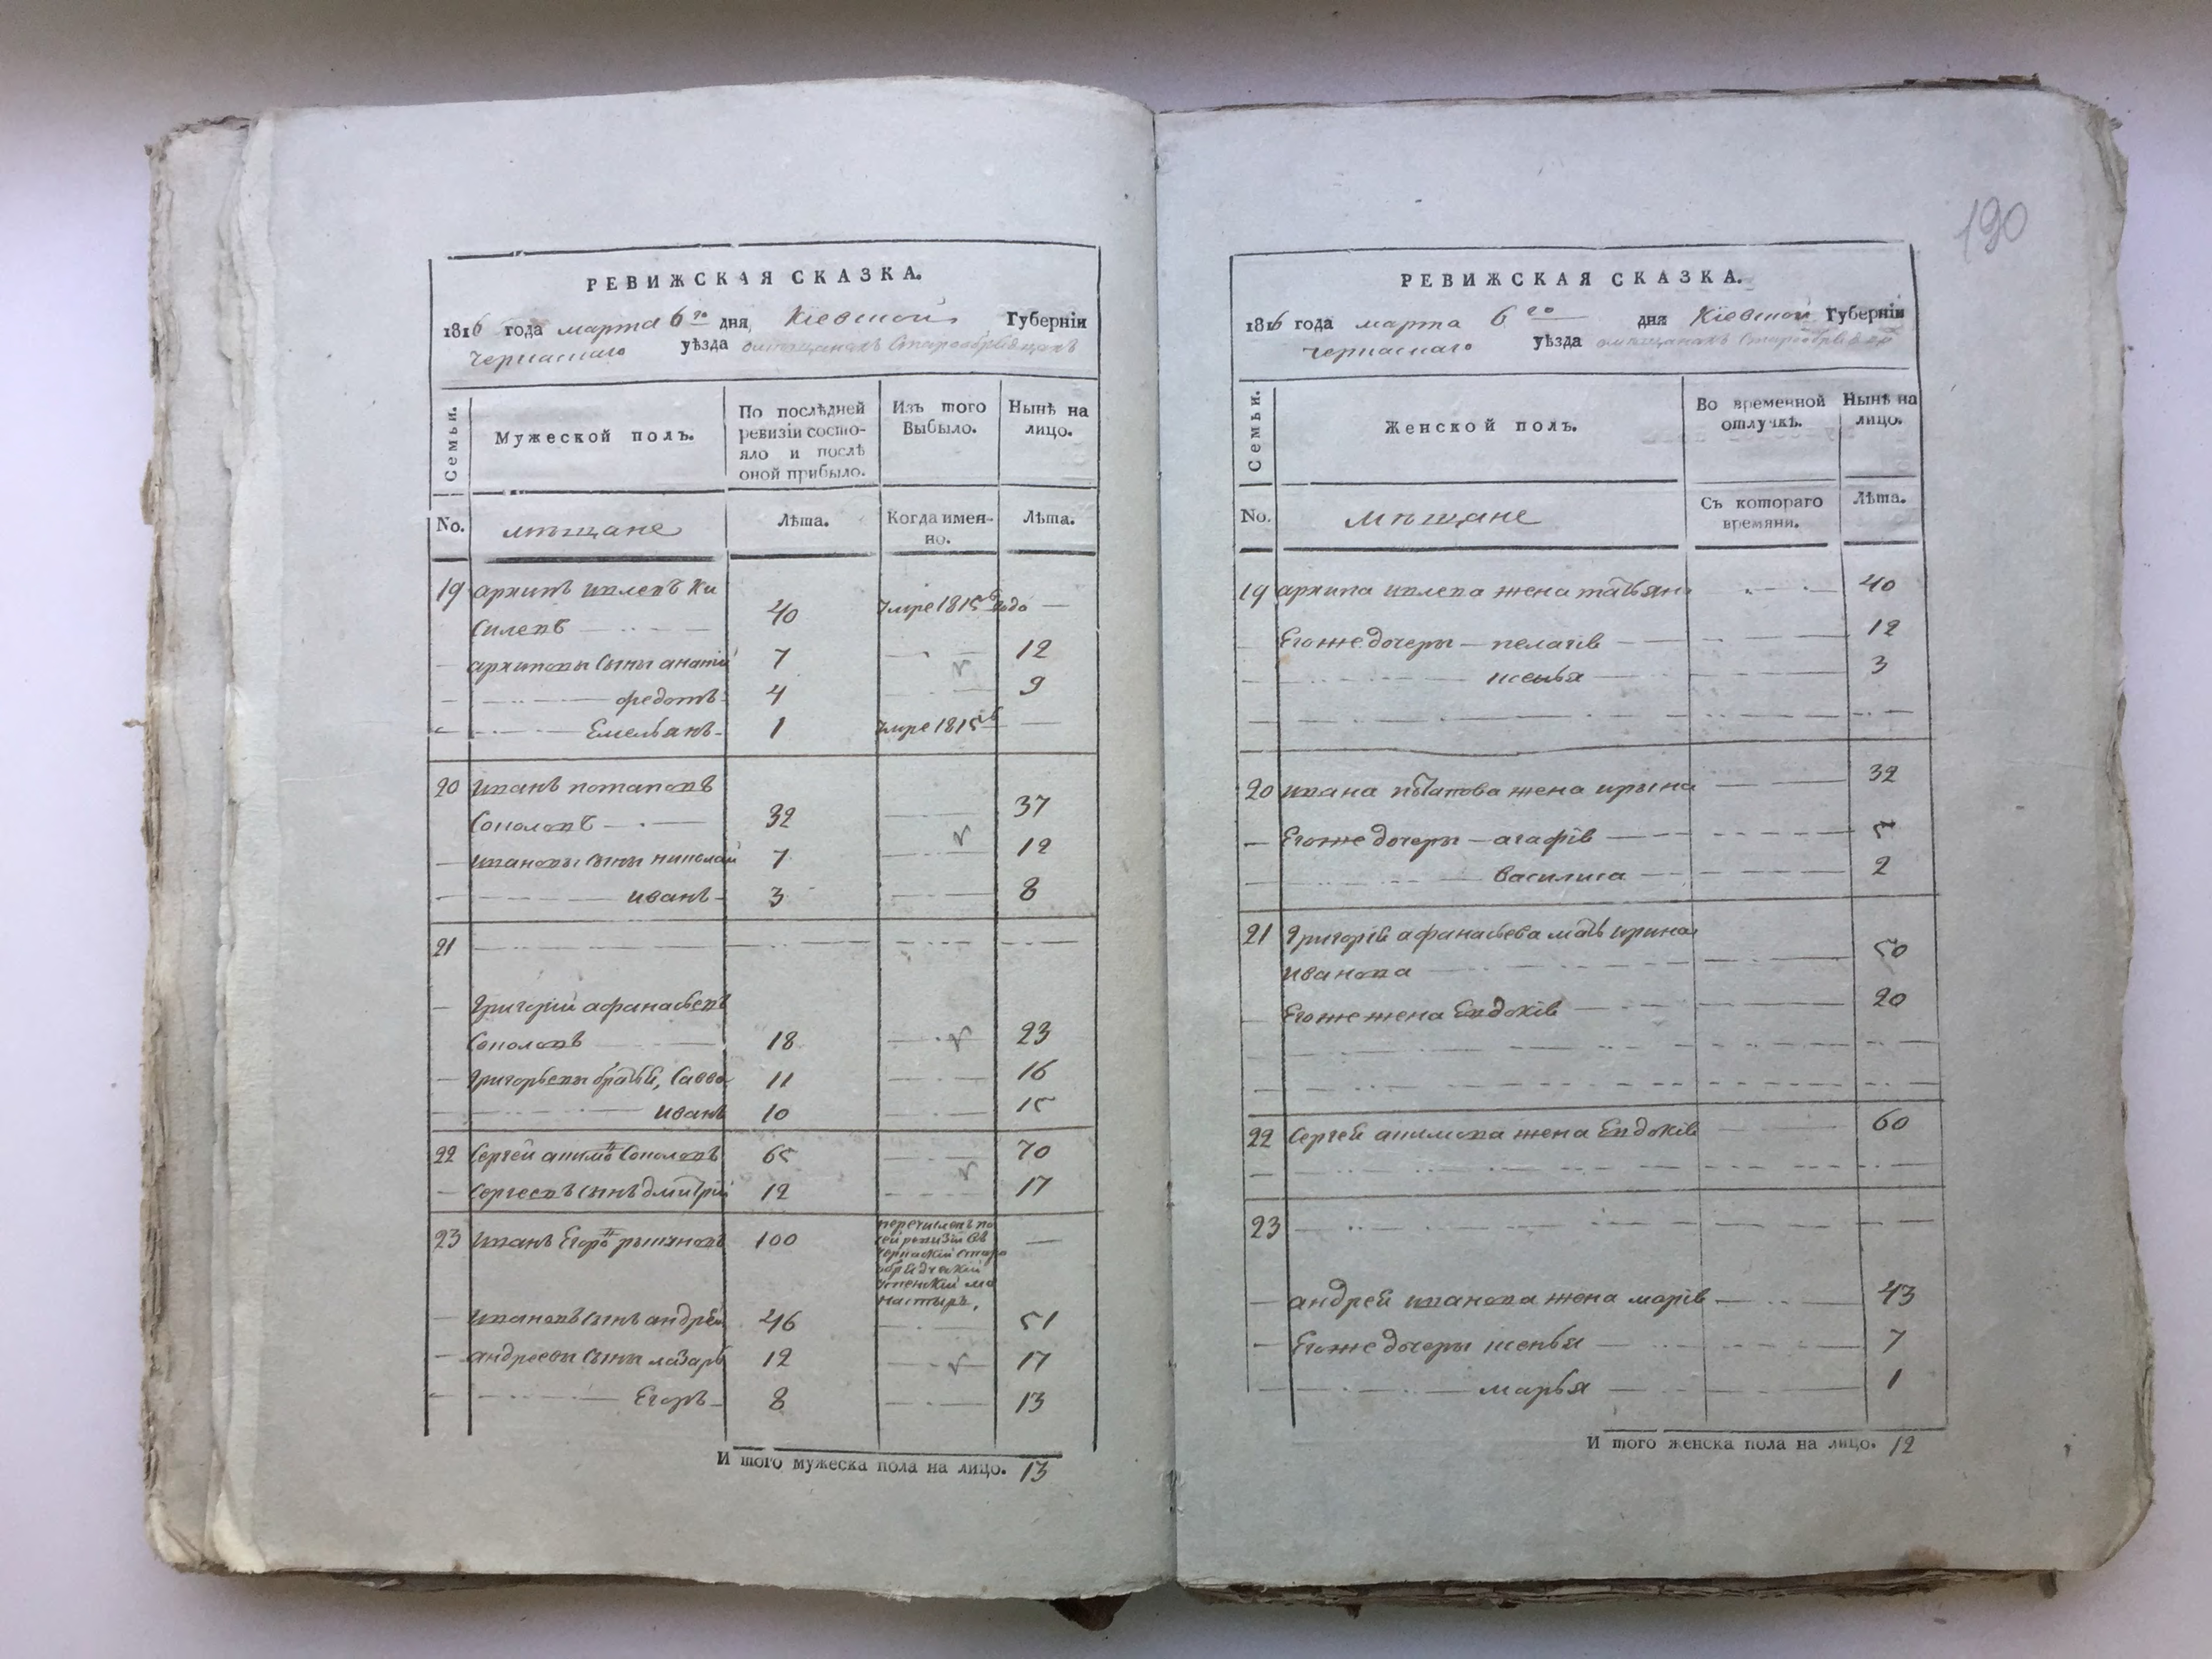 РЕВИЖСКАЯ СКАЗКА.
1816 года марта 6го дня Кіевской Губерніи
Черкаского уѣзда омѣщанахъ Старообрядцахъ
Семьи.
Мужеской полъ.
По послѣдней ревизіи состо-
яло и послѣ
оной прибыло.
Изъ того
Выбыло.
Нынѣ на
лицо.
No. мѣщане Лѣта. Когда имен-
но. Лѣта.
19 архипъ
40 умре 1815 года —
архиповы сыны 7 12
федотъ 4 9
Емельянъ 1 умре 1815 —
20 иванъ потаповъ
Соколовъ 32 37
ивановы сыны николай 7 12
иванъ 3 8
21
григорий афанасьевъ
Соколовъ 18 23
григорьевы братья, Савва 11 16
иванъ 10 15
22 Сергей Соколовъ 65 70
сергеевъ сынъ дмитрій 12 17
23 иванъ Егоровъ 100 перечисленъ по
сей ревизіи въ
черкаскій старо
обрядческій
успенскій мо
настырь,
—
ивановъ сынъ андрей 46 51
андреевы сыны лазарь 12 17
Егоръ 8 13
И того мужеска пола на лицо. 13
190
РЕВИЖСКАЯ СКАЗКА.
1816 года марта 6го дня Кіевской Губерніи
черкаского уѣзда омѣщанахъ
Семьи.
Женской полъ.
Во временной
отлучкѣ.
Нынѣ на
лицо.
No. мѣщане Съ котораго
времяни. Лѣта.
19 архипа жена татьяна 40
Егоже дочеры — пелагія 12
ксенья 3
20 ивана потапова жена ирына 32
Егоже дочеры — агафія 5
василиса 2
21 григорія афанасьева мать ирина
иванова 50
Егоже жена Евдокія 20
22 Сергея акимова жена Евдокія 60
23
андрея иванова жена марія 43
Егоже дочеры ксенья 7
марья 1
И того женска пола на лицо. 12